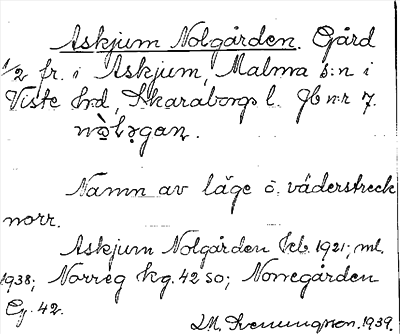 Askjum Nolgården. Gård
1/2 fr. i Askjum, Malma s:n i
Viste hrd, Skaraborgs l. Jb n:r 7.
Namn av läge o. väderstreck
norr.
Askjum Nolgården kb. 1921; ml.
1938; Norreg kg. 42 SO; Norregården
Eg. 42.
1939.